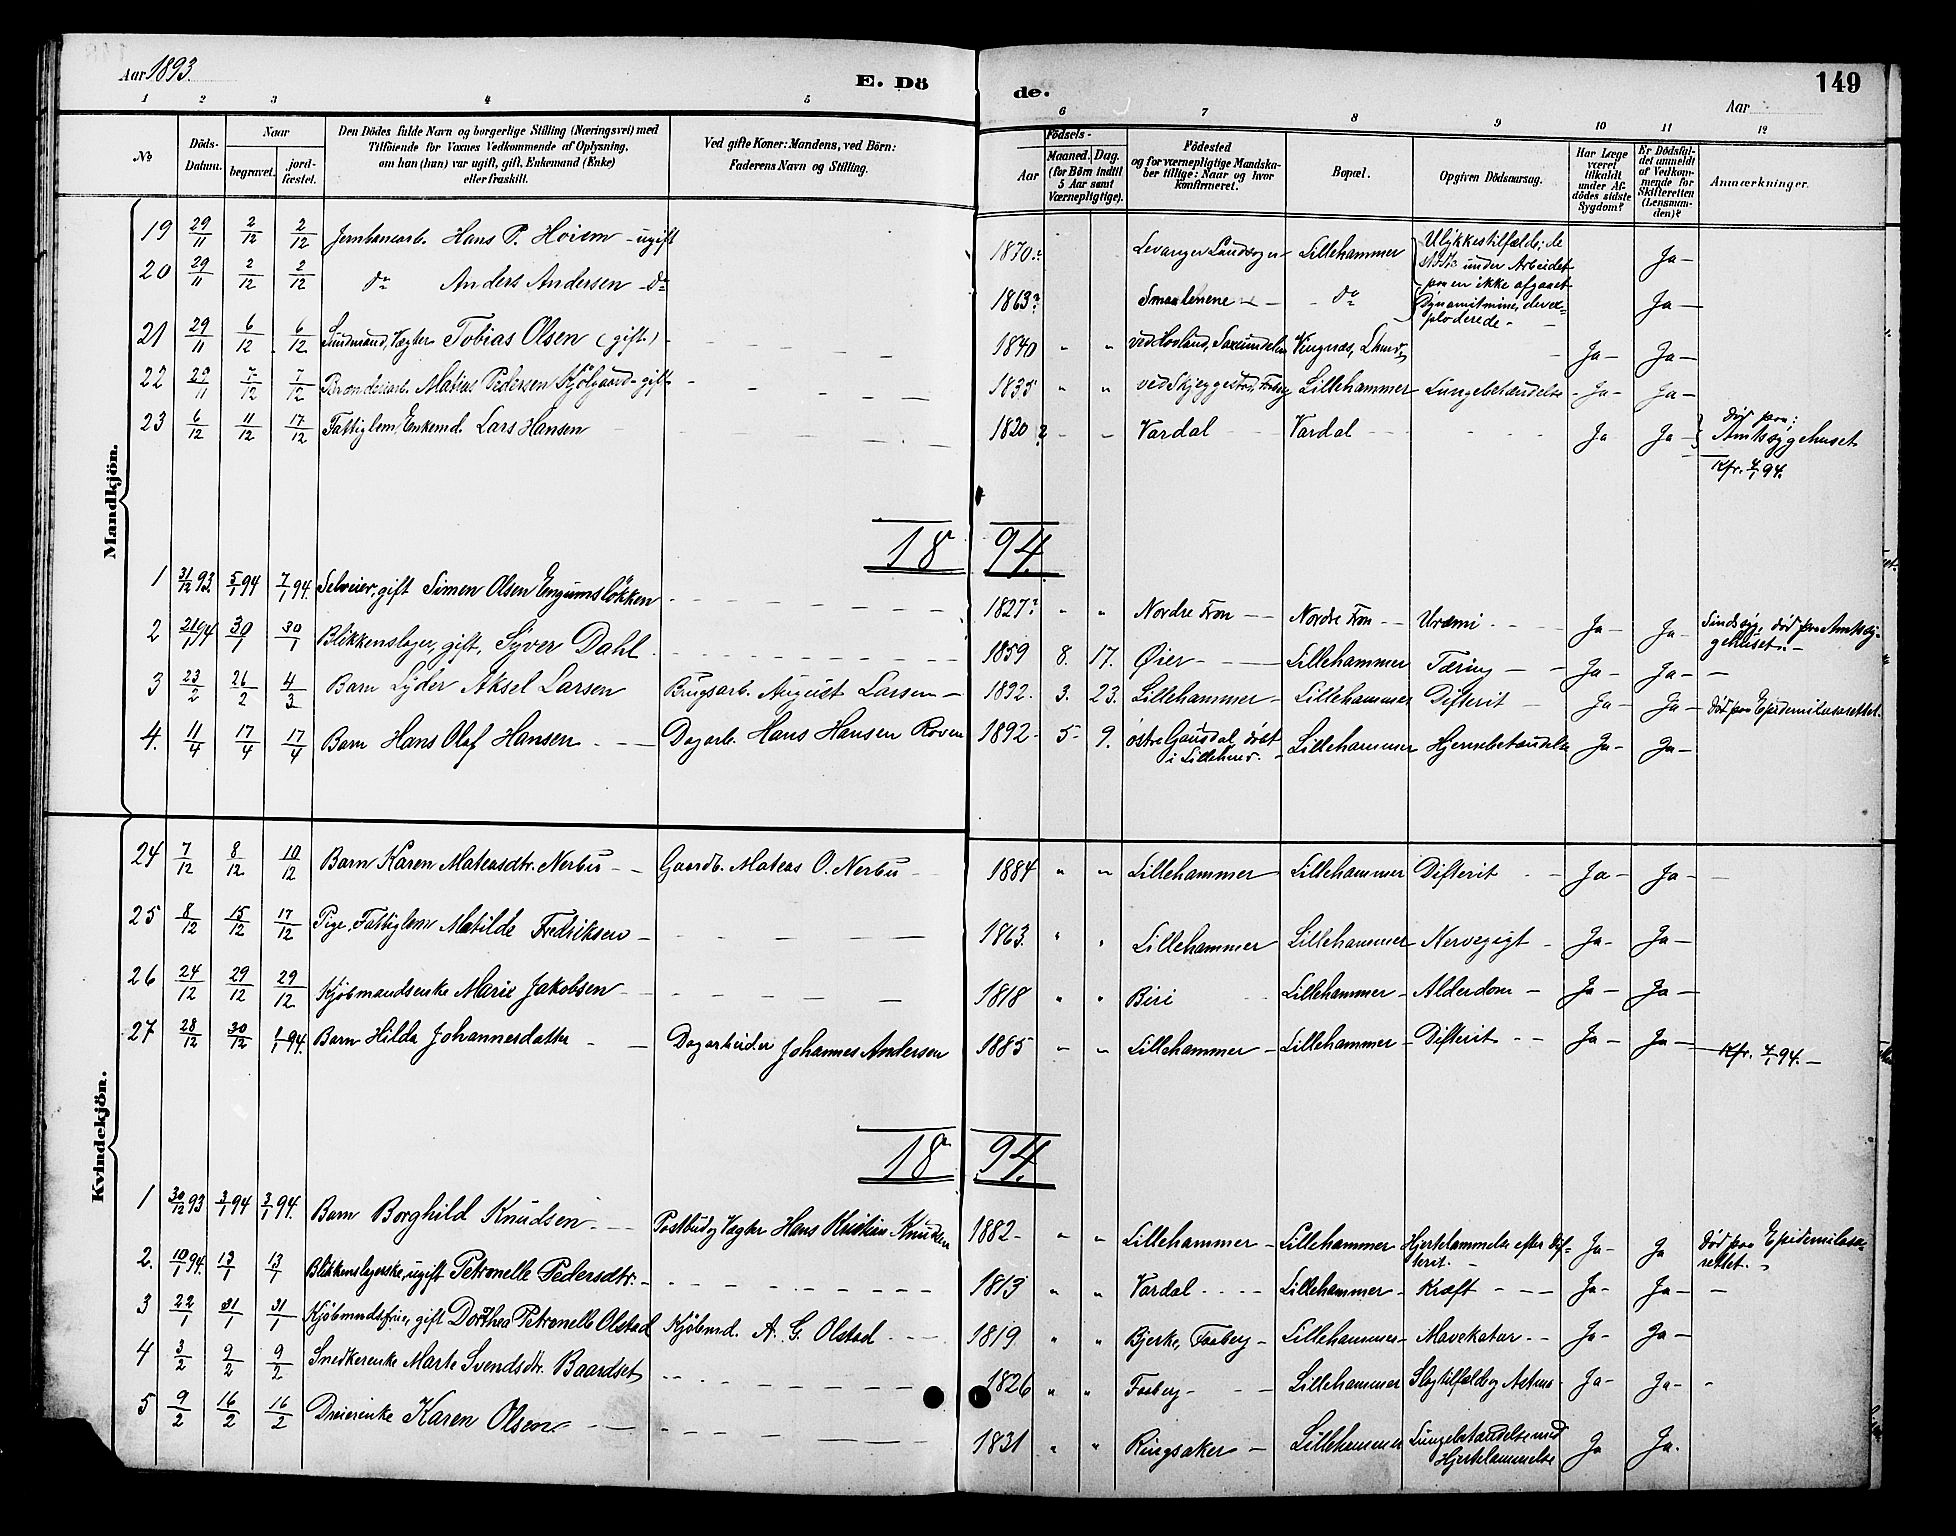 Aar 1893.
E. Dö de.
149
Aar
1 2 3 4 5 6 7 8 9 10 11 12
No
Döds-Datum.
Naar
begravet.
jord-fæstet.
Den Dödes fulde Navn og borgerlige Stilling (Næringsvei) med
Tilföiende for Voxnes Vedkommende af Oplysning,
om han (hun) var ugift, gift, Enkemand (Enke)
eller fraskilt.
Ved gifte Koner: Mandens, ved Börn:
Faderens Navn og Stilling.
Födsels-
Aar
Maaned. Dag.
(for Börn indtil
5 Aar samt
Værnepligtige).
Födested
og for værnepligtige Mandska-
ber tillige: Naar og hvor
konfirmeret.
Bopæl.
Opgiven Dödsaarsag.
Har Læge
været
tilkaldt
under Af-
dödes sidste
Sygdom?
Er Dödsfal-
det anmeldt
af Vedkom-
mende for
Skifteretten
(Lensman-
den)?
Anmærkninger.
Mandkjön.
19 29/11 2/12 2/12 Jernbanearb. Hans P. Hoiem - ugift 1870? Levanger Landsogn Lillehammer Ulykkestilfælde; de stødte under Arbeidet paa en ikke afgaaet Dynamitmine, der explodererede Ja
20 29/11 2/12 2/12 do Anders Andersen - do 1863? Smaalenene do Ja
21 29/11 6/12 6/12 Sundmand, Vægter Tobias Olsen (gift) 1840 " " ved Hovland, Vingnæs, Ja Ja
22 29/11 7/12 7/12 Brænderiarb. Matias Pedersen Kjølgaard - gift 1835 " " ved Skjeggestad, Faaberg Lillehammer Lungebetændelse Ja Ja
23 6/12 11/12 17/12 Fattiglem, Enkemd. Lars Hansen 1820? " " Vardal Vardal Ja Ja Død paa Amtssygehuset
Kfr. 4/1 94.
18 94.
1 31/12 93 5/1 94 7/1 94. Selveier, gift Simen Olsen Engumsløkken 1827? " " Nordre Fron Nordre Fron Uræmi Ja Ja Sindssyg, død paa Amtssygehuset.
2 21/1 94 30/1 30/1 Blikkenslager, gift, Syver Dahl 1859 8. 17. Øier Lillehammer Tæring Ja Ja
3 23/2 26/2 4/3 Barn Lyder Aksel Larsen Brugsarb. August Larsen 1892. 3. 23. Lillehammer Lillehammer Difterit Ja Ja Død paa Epidemilasarettet.
4. 11/4 17/4 17/4 Barn Hans Olaf Hansen Dagarb. Hans Hansen Roven 1892 5 9. Østre Gausdal, døbt i Lillehmr. Lillehammer Hjernebetændelse Ja Ja
Kvindekjön.
24 7/12 8/12 10/12 Barn Karen Mateasdtr. Nerbu Gaardb. Mateas O. Nerbu 1884 " " Lillehammer Lillehammer Difterit Ja Ja
25 8/12 15/12 17/12 Pige, Fattiglem Matilde Fredriksen 1863. " " Lillehammer Lillehammer Nervegigt Ja Ja
26 24/12 29/12 29/12 Kjøbmandsenke Marie Jakobsen 1818 " " Biri Lillehammer Alderdom Ja Ja
27 28/12 30/12 1/1 94. Barn Hilda Johannesdatter Dagarbeider Johannes Andersen 1885 " " Lillehammer Lillehammer Difterit Ja Ja
Kfr. 4/1 94.
18 94.
1 30/12 93 3/1 94 3/1 94. Barn Borghild Knudsen Postbud og Vægter Hans Kristian Knudsen 1882 " " Lillehammer Lillehammer Hjertelammelse efter Difterit. Ja Ja Død paa Epidemilasarettet.
2. 10/1 94. 13/1 13/1 Blikkenslagerske, ugift Petronelle Pedersdtr. 1813 " " Vardal Lillehammer Kræft Ja Ja
3 22/1 31/1 31/1 Kjøbmandsfrue, gift Dorthea Petronelle Olstad Kjøbmd. A. G. Olstad 1819 " " Bjerke, Faaberg Lillehammer Mavekatar Ja Ja
4 3/2 9/2 9/2 Snedkerenke Marte Svendsdtr. Baardset 1826 " " Faaberg Lillehammer Slagtilfælde og Astma Ja Ja
5 9/2 16/2 16/2 Dreierenke Karen Olsen 1831 " " Ringsaker Lillehammer Lungebetændelse med Hjertelammelse Ja Ja.